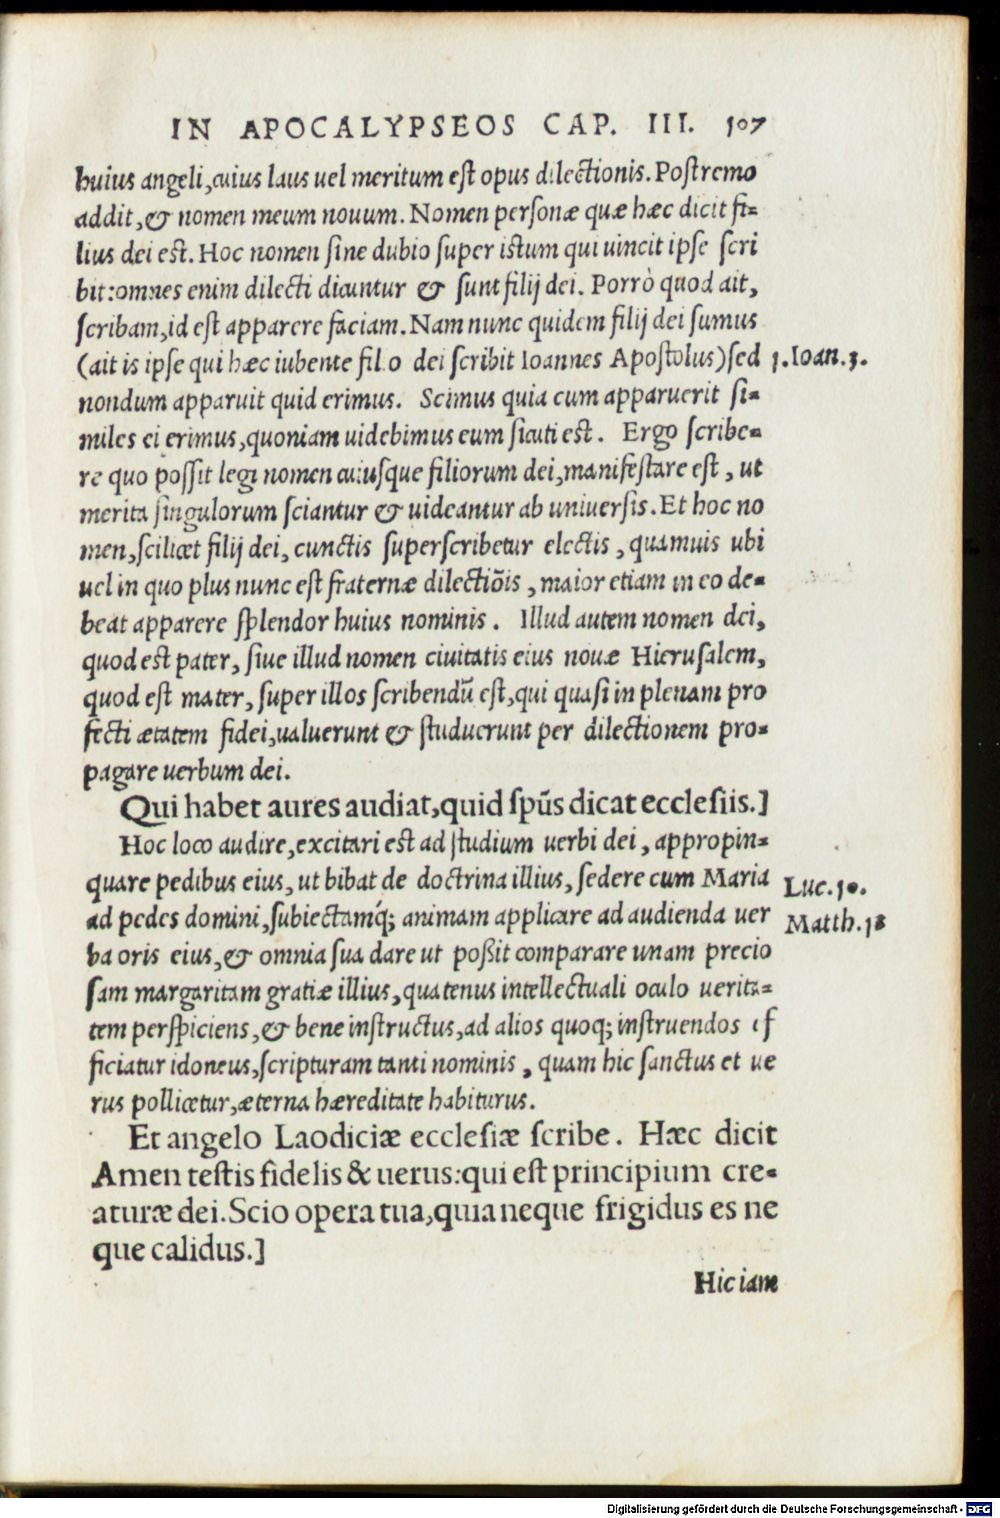 IN APOCALYPSEOS CAP. III. 107
huius angeli, cuius laus uel meritum est opus dilectionis. Postremo
addit, & nomen meum nouum. Nomen personæ quæ hæc dicit fi-
lius dei est. Hoc nomen sine dubio super istum qui uincit ipse scri
bit: omnes enim dilecti dicuntur & sunt filij dei. Porrò quod ait,
scribam, id est apparere faciam. Nam nunc quidem filij dei sumus
(ait is ipse qui hæc iubente filio dei scribit Ioannes Apostolus) sed 1. Ioan. 3.
nondum apparuit quid erimus. Scimus quia cum apparuerit si-
miles ei erimus, quoniam uidebimus eum sicuti est. Ergo scribe-
re quo possit legi nomen cuiusque filiorum dei, manifestare est, ut
merita singulorum sciantur & uideantur ab uniuersis. Et hoc no
men, scilicet filij dei, cunctis superscribetur electis, quamuis ubi
uel in quo plus nunc est fraternæ dilectiõis, maior etiam in eo de-
beat apparere splendor huius nominis. Illud autem nomen dei,
quod est pater, siue illud nomen ciuitatis eius nouæ Hierusalem,
quod est mater, super illos scribendũ est, qui quasi in plenam pro
fecti ætatem fidei, ualuerunt & studuerunt per dilectionem pro-
pagare uerbum dei.
Qui habet aures audiat, quid spũs dicat ecclesiis.]
Hoc loco audire, excitari est ad studium uerbi dei, appropin-
quare pedibus eius, ut bibat de doctrina illius, sedere cum Maria Luc. 10.
ad pedes domini, subiectamq́; animam applicare ad audienda uer Matth. 18
ba oris eius, & omnia sua dare ut poßit comparare unam precio
sam margaritam gratiæ illius, quatenus intellectuali oculo uerita-
tem perspiciens, & bene instructus, ad alios quoq; instruendos ef
ficiatur idoneus, scripturam tanti nominis, quam hic sanctus et ue
rus pollicetur, æterna hæreditate habiturus.
Et angelo Laodiciæ ecclesiæ scribe. Hæc dicit
Amen testis fidelis & uerus: qui est principium cre-
aturæ dei. Scio opera tua, quia neque frigidus es ne
que calidus.]
Hic iam
Digitalisierung gefördert durch die Deutsche Forschungsgemeinschaft - DFG